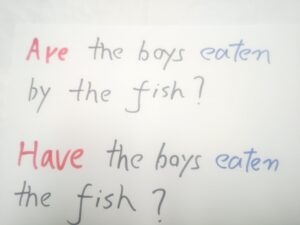 Are the boys eaten
by the fish?
Have the boys eaten
the fish?